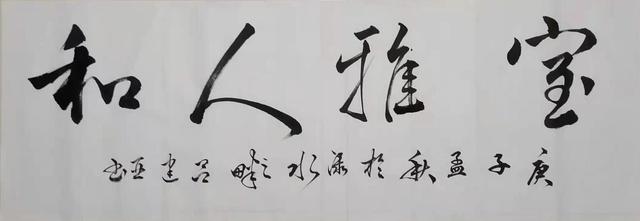 室雅人和
庚子孟秋於淥水之畔吕建亚书